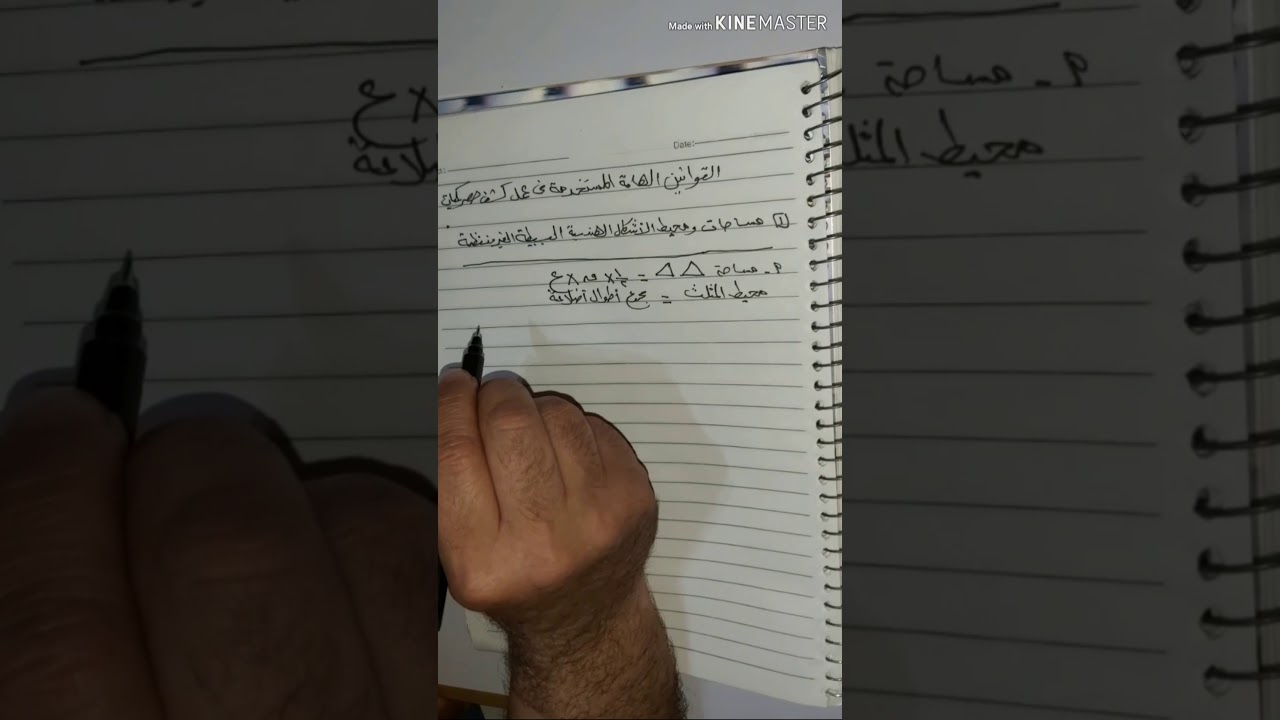 Made with KINEMASTER
Date:
القوانين الهامة المستخدمة فى عمل كشف حصر كميات
1 مساحات ومحيط الأشكال الهندسية البسيطة الغير منتظمة
P - مساحة △ △ = ½ × ق × ع
محيط المثلث = مجموع أطوال أضلاعة